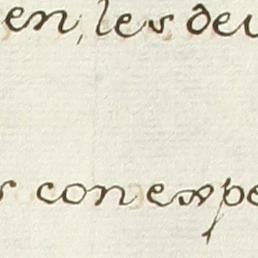 en, les deu
s con expe